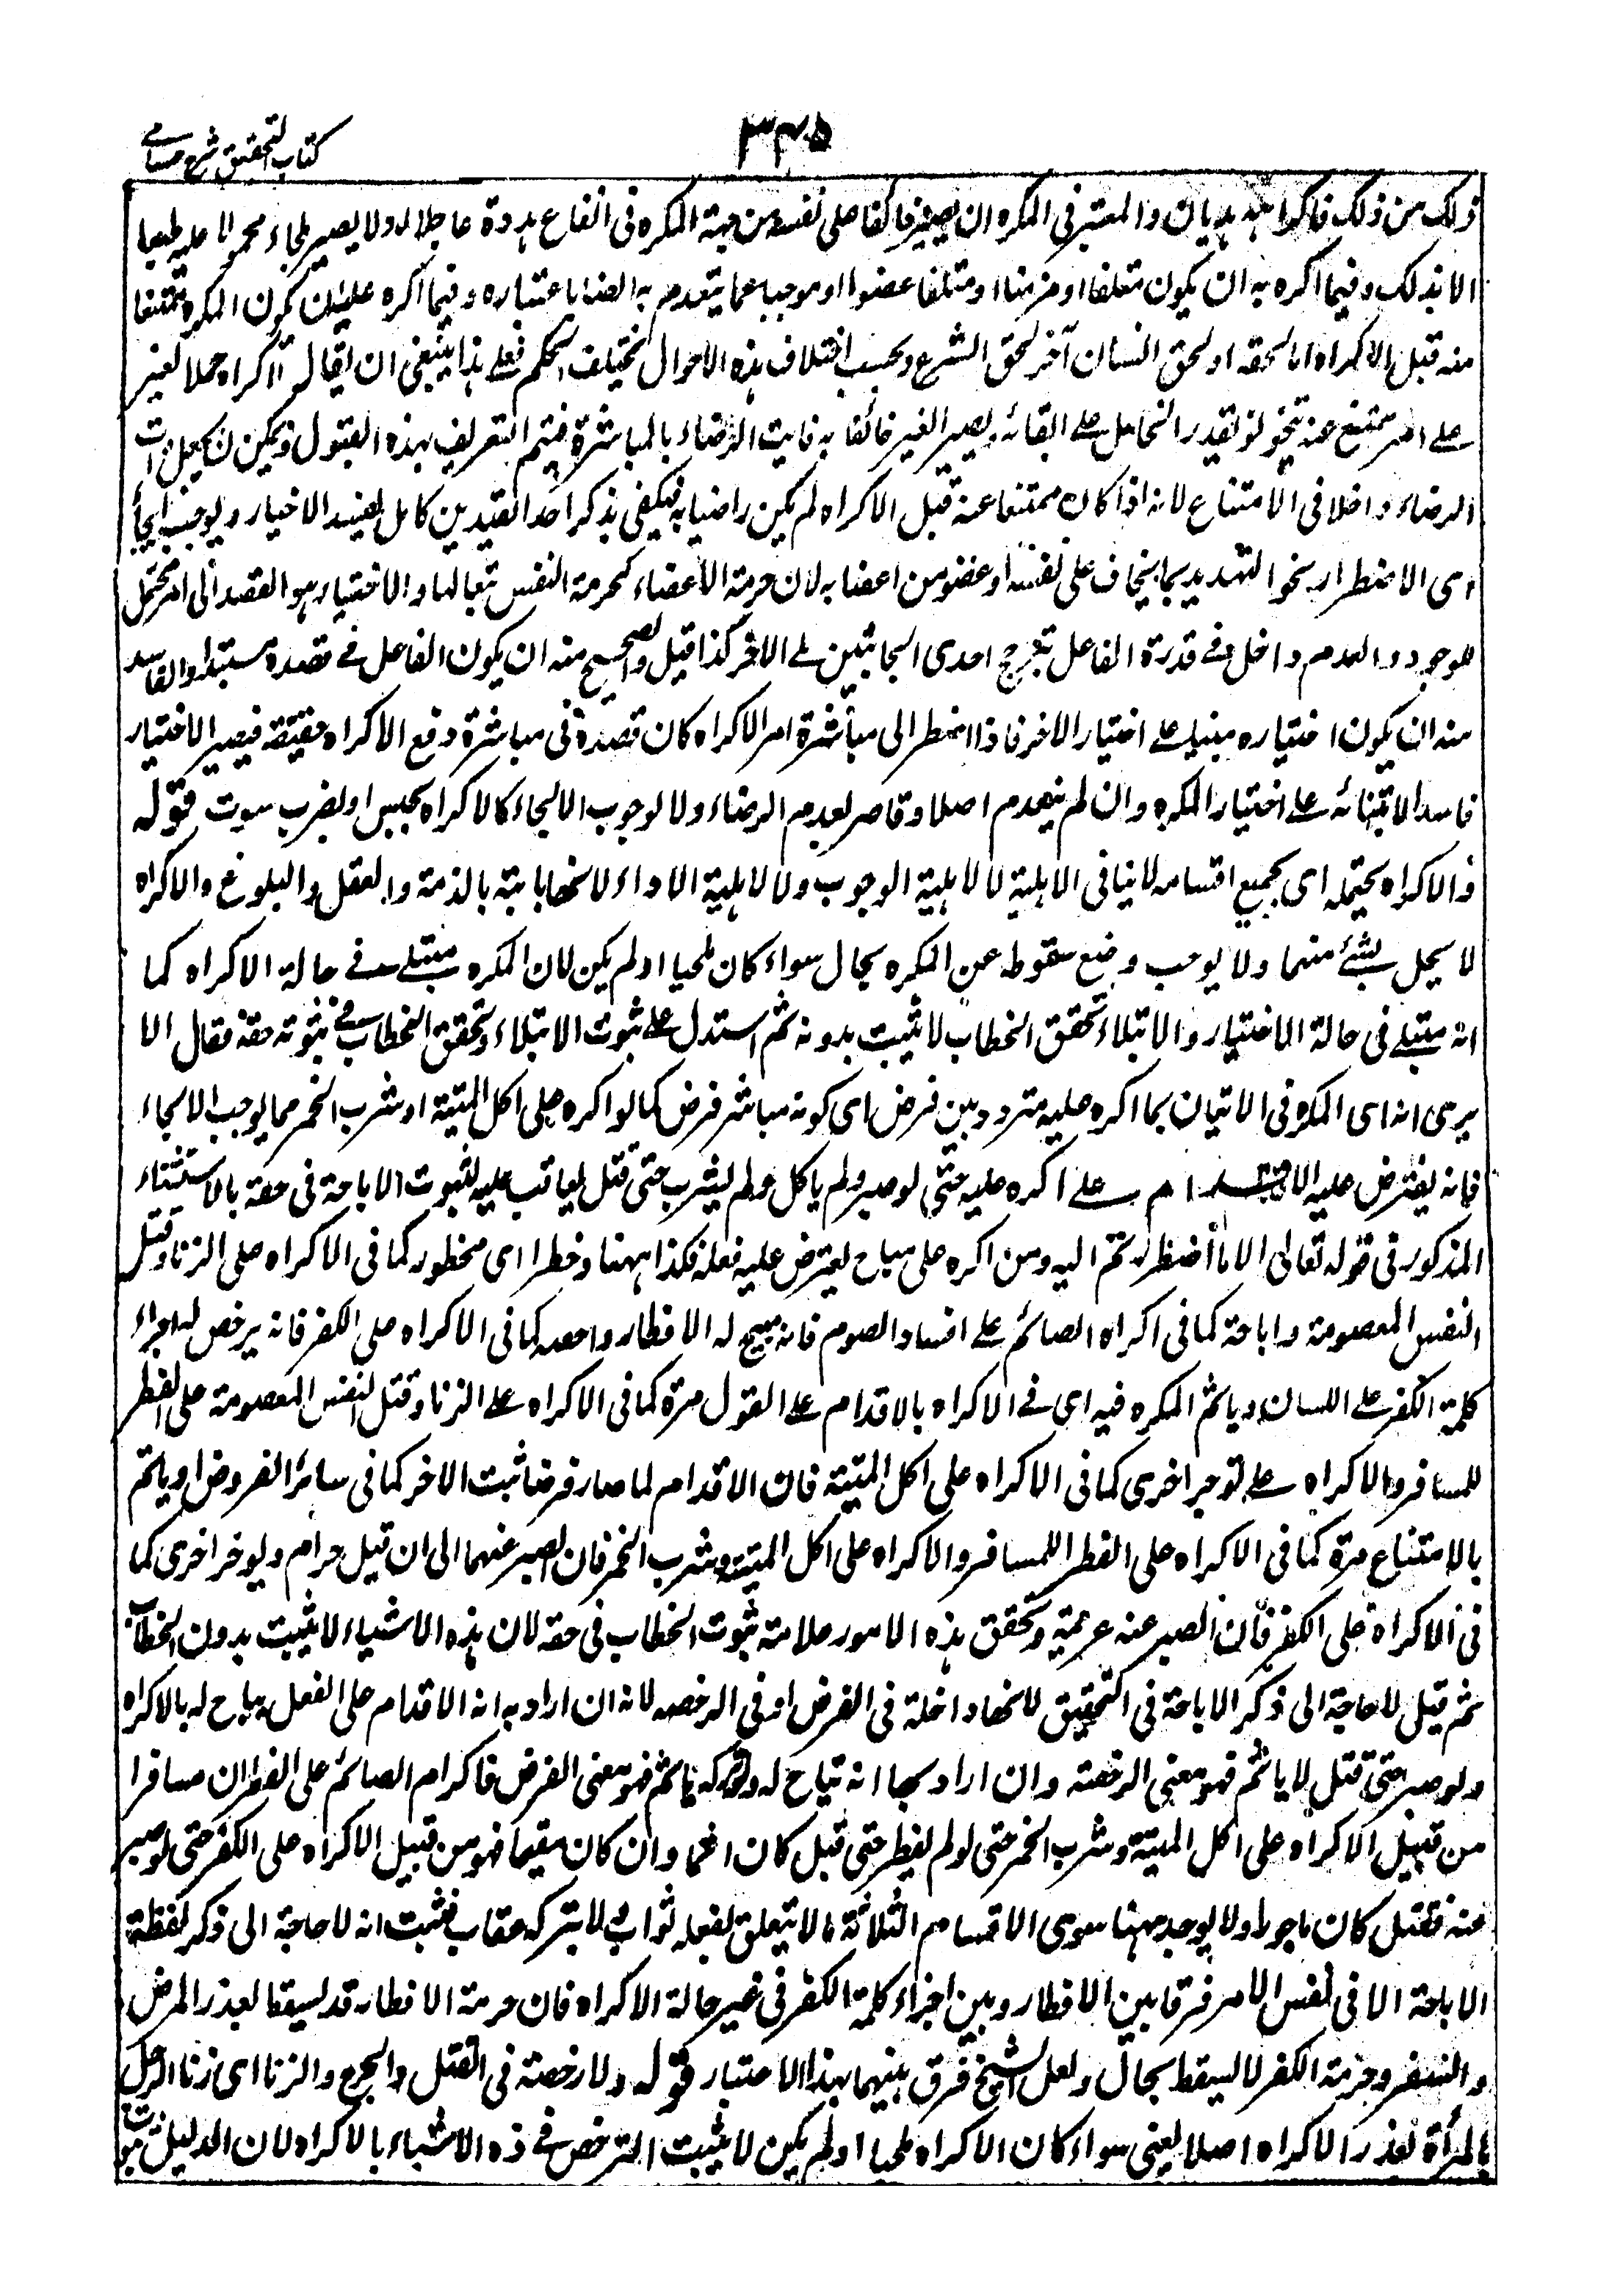 ٣٤٥
كتاب التحقيق شرح حسامي
ذلك من ذلك فاكراه هذيان والمعتبر في المكره ان يصير خائفا على نفسه من جهة المكره في ايقاع ما هدده عاجلا لانه لا يصير ملجاء محمولا عليه طبعا
الا بذلك وفيما اكره به ان يكون متلفا او مزمنا او متلفا عضوا او موجبا عما ينعدم به الرضا باعتباره وفيما اكره عليه ان يكون المكره ممتنعا
منه قبل الاكراه اما لحقه او لحق انسان آخر او لحق الشرع وبحسب اختلاف هذه الاحوال يختلف الحكم فعلى هذا ينبغي ان يقال الاكراه حمل الغير
على امر يمتنع عنه بتخويف يقدر الحامل على ايقاعه ويصير الغير خائفا به فايت الرضاء بالمباشرة فيتم التعريف بهذه القيود ويمكن ان يجعل فوات
الرضاء داخلا في الامتناع لانه اذا كان ممتنعا عنه قبل الاكراه لم يكن راضيا به فيكفي بذكر احد القيدين كامل يفسد الاختيار ويوجب الجاء
اى الاضطرار نحو التهديد بما يخاف على نفسه او عضو من اعضائه لان حرمة الاعضاء كحرمة النفس تبعا لها والاختيار هو القصد الى امر محتمل
للوجود والعدم داخل في قدرة الفاعل بترجيح احدى الجانبين على الاخر كذا قيل والصحيح منه ان يكون الفاعل في قصده مستبدا والفاسد
منه ان يكون اختياره مبنيا على اختيار الاخر فاذا اضطر الى مباشرة امر الاكراه كان قصده في مباشرة دفع الاكراه حقيقة فيصير الاختيار
فاسدا لابتنائه على اختيار المكره وان لم ينعدم اصلا وقاصر يعدم الرضاء ولا يوجب الالجاء كالاكراه بحبس او بضرب سوت قوله
والاكراه بجملته اى بجميع اقسامه لا ينافي الاهلية لا لاهلية الوجوب ولا لاهلية الاداء لانها ثابتة بالذمة والعقل والبلوغ والاكراه
لا يخل بشئ منهما ولا يوجب وضع سقوطه عن المكره بحال سواء كان ملجيا او لم يكن لان المكره مبتلى في حالة الاكراه كما
انه مبتلى في حالة الاختيار والابتلاء تحقق الخطاب لا يثبت بدونه ثم استدل على ثبوت الابتلاء وتحقق الخطاب في ثبوته حقه فقال الا
يرى انه اى المكره في الاتيان بما اكره عليه متردد بين فرض اى كونه مباشر فرض كما لو اكره على اكل الميتة او شرب الخمر مما يوجب الالجاء
فانه يفترض عليه الاقدام على ما اكره عليه حتى لو صبر ولم ياكل ولم يشرب حتى قتل يعاقب عليه لثبوت الاباحة في حقه بالاستثناء
المذكور في قوله تعالى الا ما اضطررتم اليه ومن اكره على مباح يفترض عليه فعله فكذا ههنا وخطر اى محظور كما في الاكراه على الزنا وقتل
النفس المعصومة واباحة كما في اكراه الصائم على افساد الصوم فانه يبيح له الافطار ورخصة كما في الاكراه على الكفر فانه يرخص له اجراء
كلمة الكفر على اللسان ويأثم المكره فيه اى في الاكراه بالاقدام على القول مرة كما في الاكراه على الزنا وقتل النفس المعصومة على الفطر
للمسافر والاكراه على ويوجر اخرى كما في الاكراه على اكل الميتة فان الاقدام لما صار فرضا ثبت الاجر كما في سائر الفروض او يأثم
بالامتناع مرة كما في الاكراه على الفطر للمسافر والاكراه على اكل الميتة وشرب الخمر فان الصبر عنهما الى ان قتل حرام ويوجر اخرى كما
في الاكراه على الكفر فان الصبر عنه عزيمة وتحقق هذه الامور علامة ثبوت الخطاب في حقه لان هذه الاشياء لا يثبت بدون الخطاب
ثم قيل لا حاجة الى ذكر الاباحة في التحقيق لانها داخلة في الفرض او في الرخصة لانه ان اراد به انه الاقدام على الفعل يباح له بالاكراه
ولو صبر حتى قتل لا ياثم فهو معنى الرخصة وان اراد بها انه يباح له ولو تركه ياثم فهو معنى الفرض فاكراه الصائم على الفطر ان مسافرا
من قبيل الاكراه على اكل الميتة وشرب الخمر حتى لو لم يفطر حتى قتل كان اثما وان كان مقيما فهو من قبيل الاكراه على الكفر حتى لو صبر
عنه فقتل كان ماجورا ولا يوجد ههنا سوى الاقسام الثلاثة ما لا يتعلق بفعله ثواب ولا بتركه عقاب فثبت انه لا حاجة الى ذكر لفظة
الاباحة الا في نفس الامر فرقا بين الافطار وبين اجراء كلمة الكفر في غير حالة الاكراه فان حرمة الافطار قد يسقط بعذر المرض
والسفر وحرمة الكفر لا يسقط بحال ولعل الشيخ فرق بينهما بهذا الاعتبار قوله ولا رخصة في القتل والجرح والزنا اى زنا الرجل
بالمرأة بعذر الاكراه اصلا يعني سواء كان الاكراه ملجيا او لم يكن لا يثبت الترخص في ذه الاشياء بالاكراه لان الدليل ثبوت